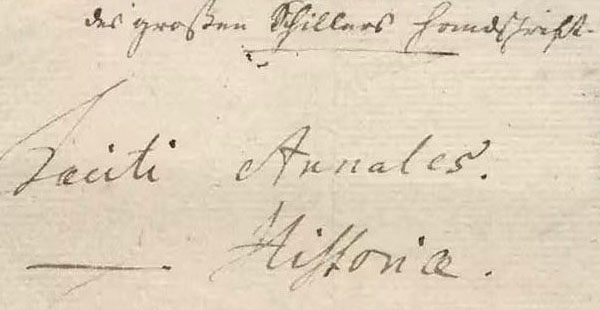 des großen Schillers Handschrift.
Taciti Annales.
—. Historiæ.